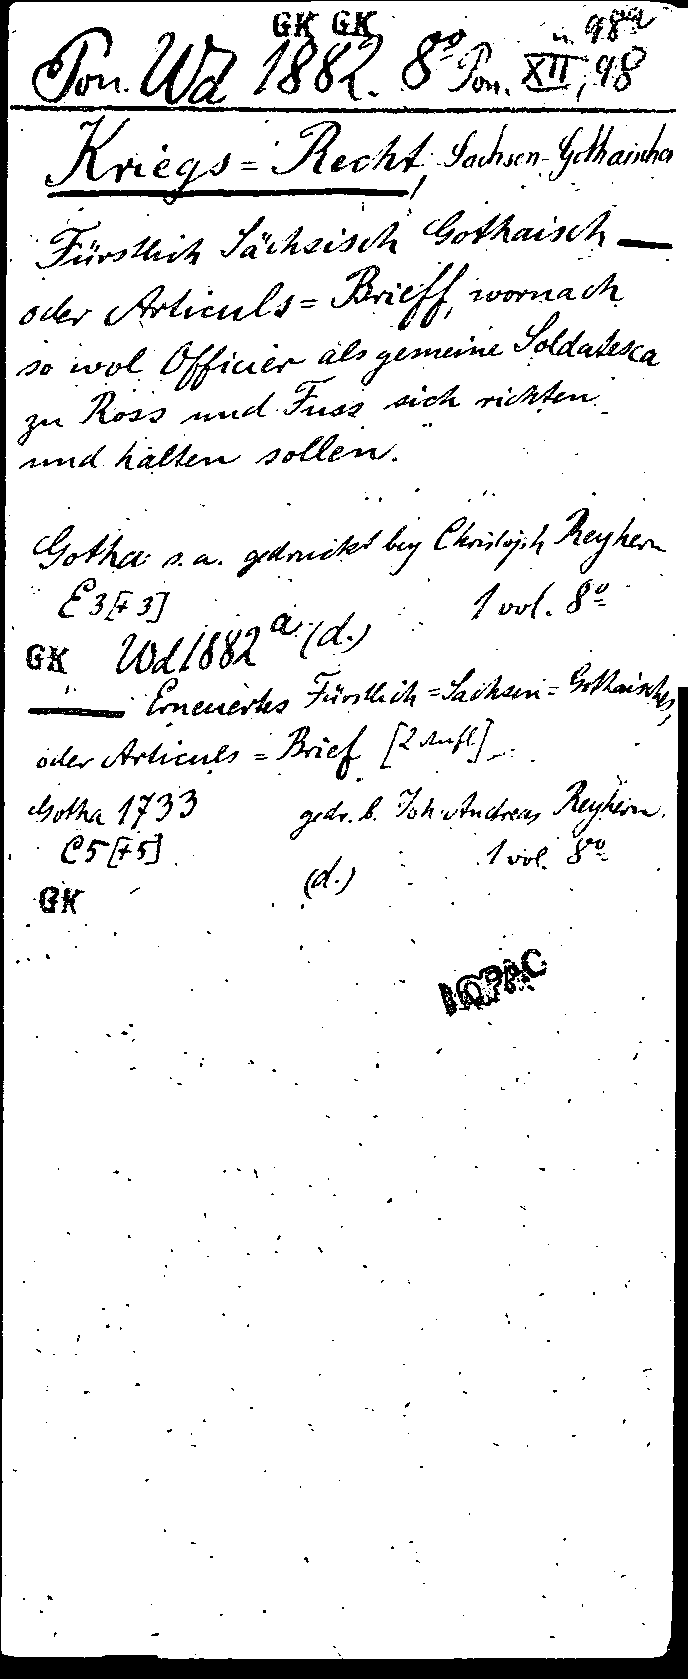 GK GK
u. 98a
Pon. Wd 1882. 8º Pon. XII, 98
Kriegs=Recht, Sachsen-Gothaisches
Fürstlich Sächsisch Gothaisch —
oder Articuls=Brieff, wornach
so wol Officier als gemeine Soldatesca
zu Ross und Fuss sich richten
und halten sollen.
Gotha s.a. gedruckt bey Christoph Reyhern
E3[+3] 1 vol. 8º
GK Wd 1882a (d.)
— Erneuertes Fürstlich=Sachsen=Gothaisches,
oder Articuls=Brief [2 Aufl]
Gotha 1733 gedr. b. Joh. Andreas Reyhern.
C5[+5] 1 vol. 8º
GK (d.)
IOPAC